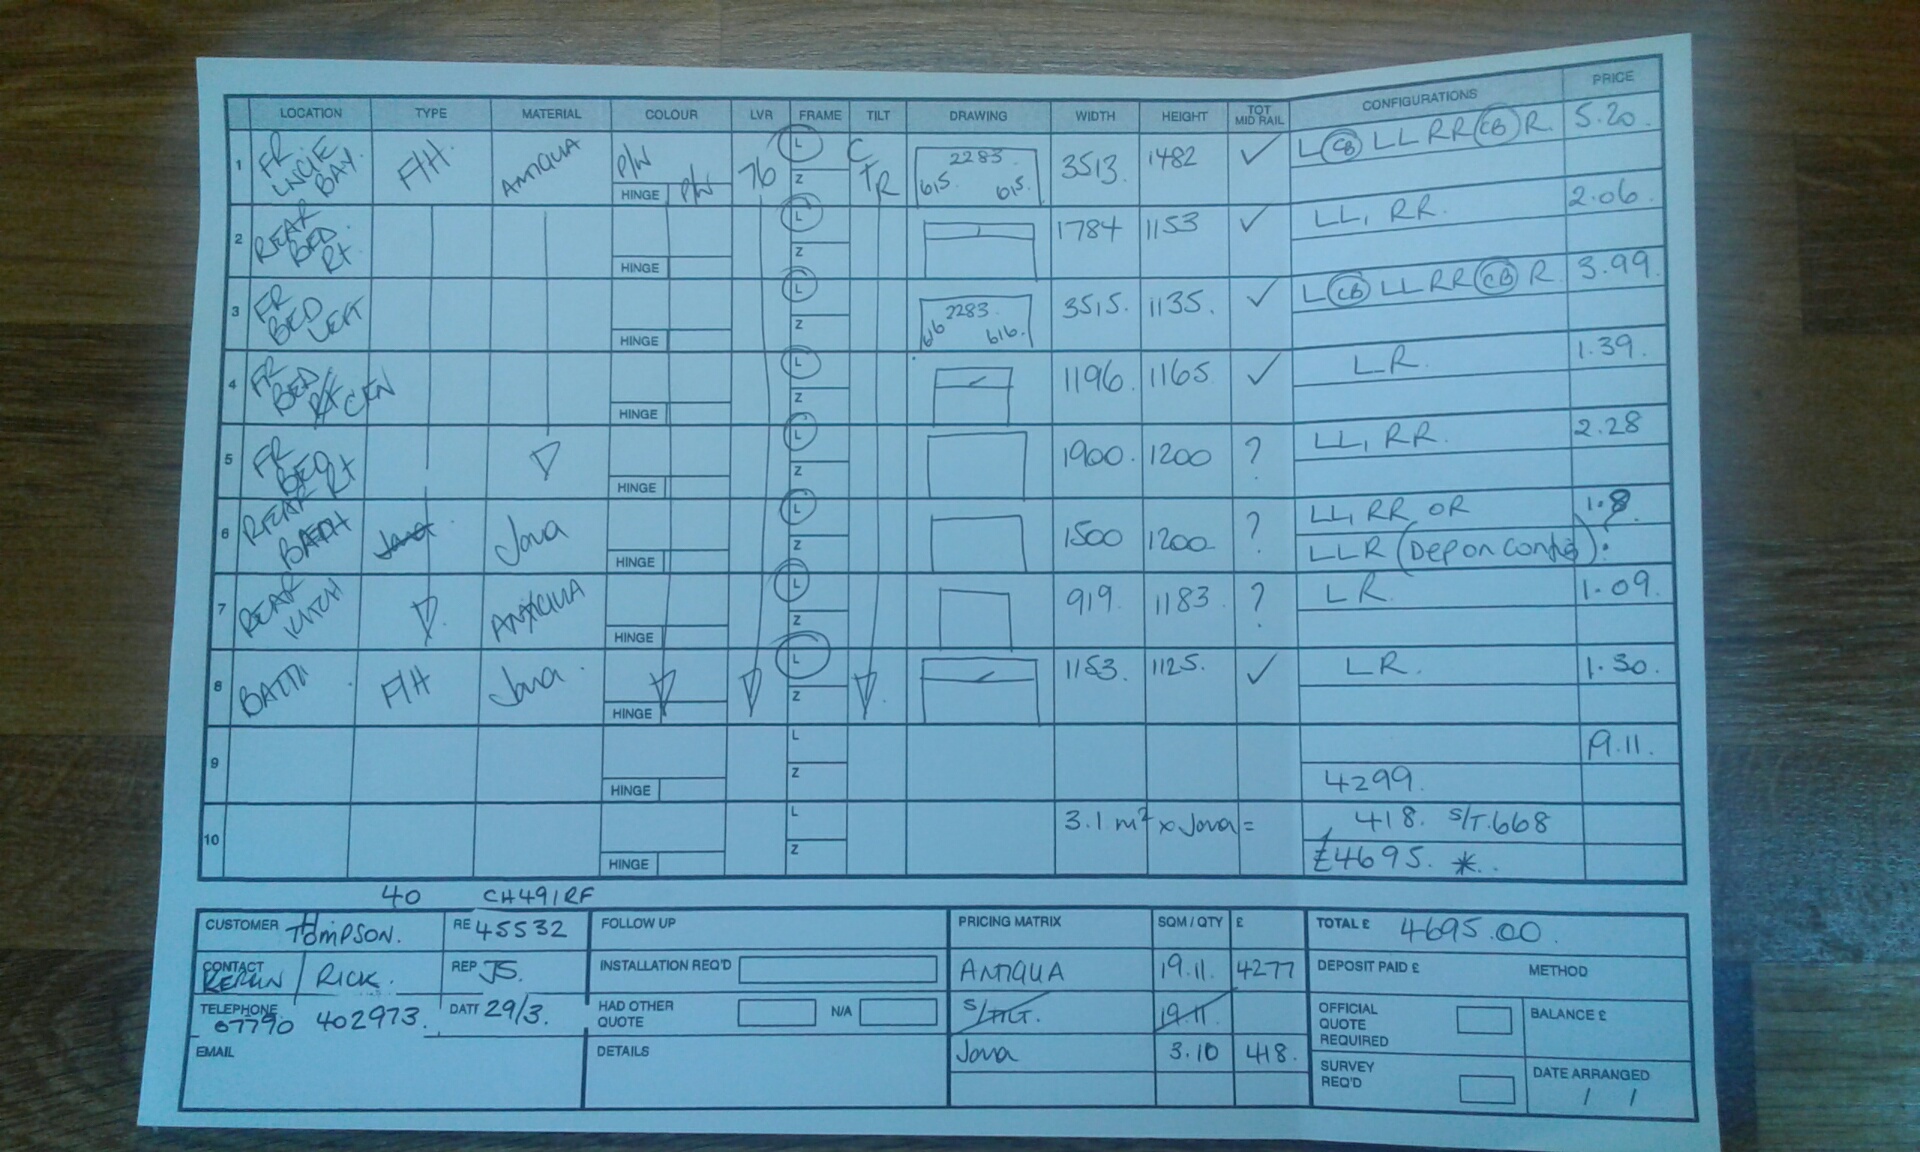 LOCATION TYPE MATERIAL COLOUR LVR FRAME TILT DRAWING WIDTH HEIGHT TOT MID RAIL CONFIGURATIONS PRICE
1 FR LNGIE BAY. F/H. ANTIQUA P/W HINGE P/W 76 L Z C T R 2283. 615. 615. 3513. 1482 ✓ L CB LL RR CB R. 5.20.
2 REAR BED. RT. HINGE L Z 1784 1153 ✓ LL, RR. 2.06.
3 FR BED LEFT HINGE L Z 2283. 616 616. 3515. 1135. ✓ L CB LL RR CB R. 3.99.
4 FR BED CEN HINGE L Z 1196. 1165 ✓ LR. 1.39.
5 FR BED RT HINGE L Z 1900. 1200 ? LL, RR. 2.28
6 REAR BATH Java Java HINGE L Z 1500 1200 ? LL, RR OR 1.8
LLR (Dep on Config)?
7 REAR KITCH ANTIQUA HINGE L Z 919. 1183. ? LR. 1.09.
8 BATH F/H Java HINGE L Z 1153. 1125. ✓ LR. 1.30.
9 HINGE L Z 19.11.
4299.
10 HINGE L Z 3.1 m² x Java = 418. S/T.668
£4695. *
40 CH491RF
CUSTOMER TOMPSON. RE 45532 FOLLOW UP PRICING MATRIX SQM / QTY £ TOTAL £ 4695.00.
CONTACT / RICK. REP JS. INSTALLATION REQ'D ANTIQUA 19.11. 4277 DEPOSIT PAID £ METHOD
TELEPHONE 07790 402973. DATE 29/3. HAD OTHER QUOTE N/A S/TILT. 19.11. OFFICIAL QUOTE REQUIRED BALANCE £
EMAIL DETAILS Java 3.10 418. SURVEY REQ'D DATE ARRANGED
/ /